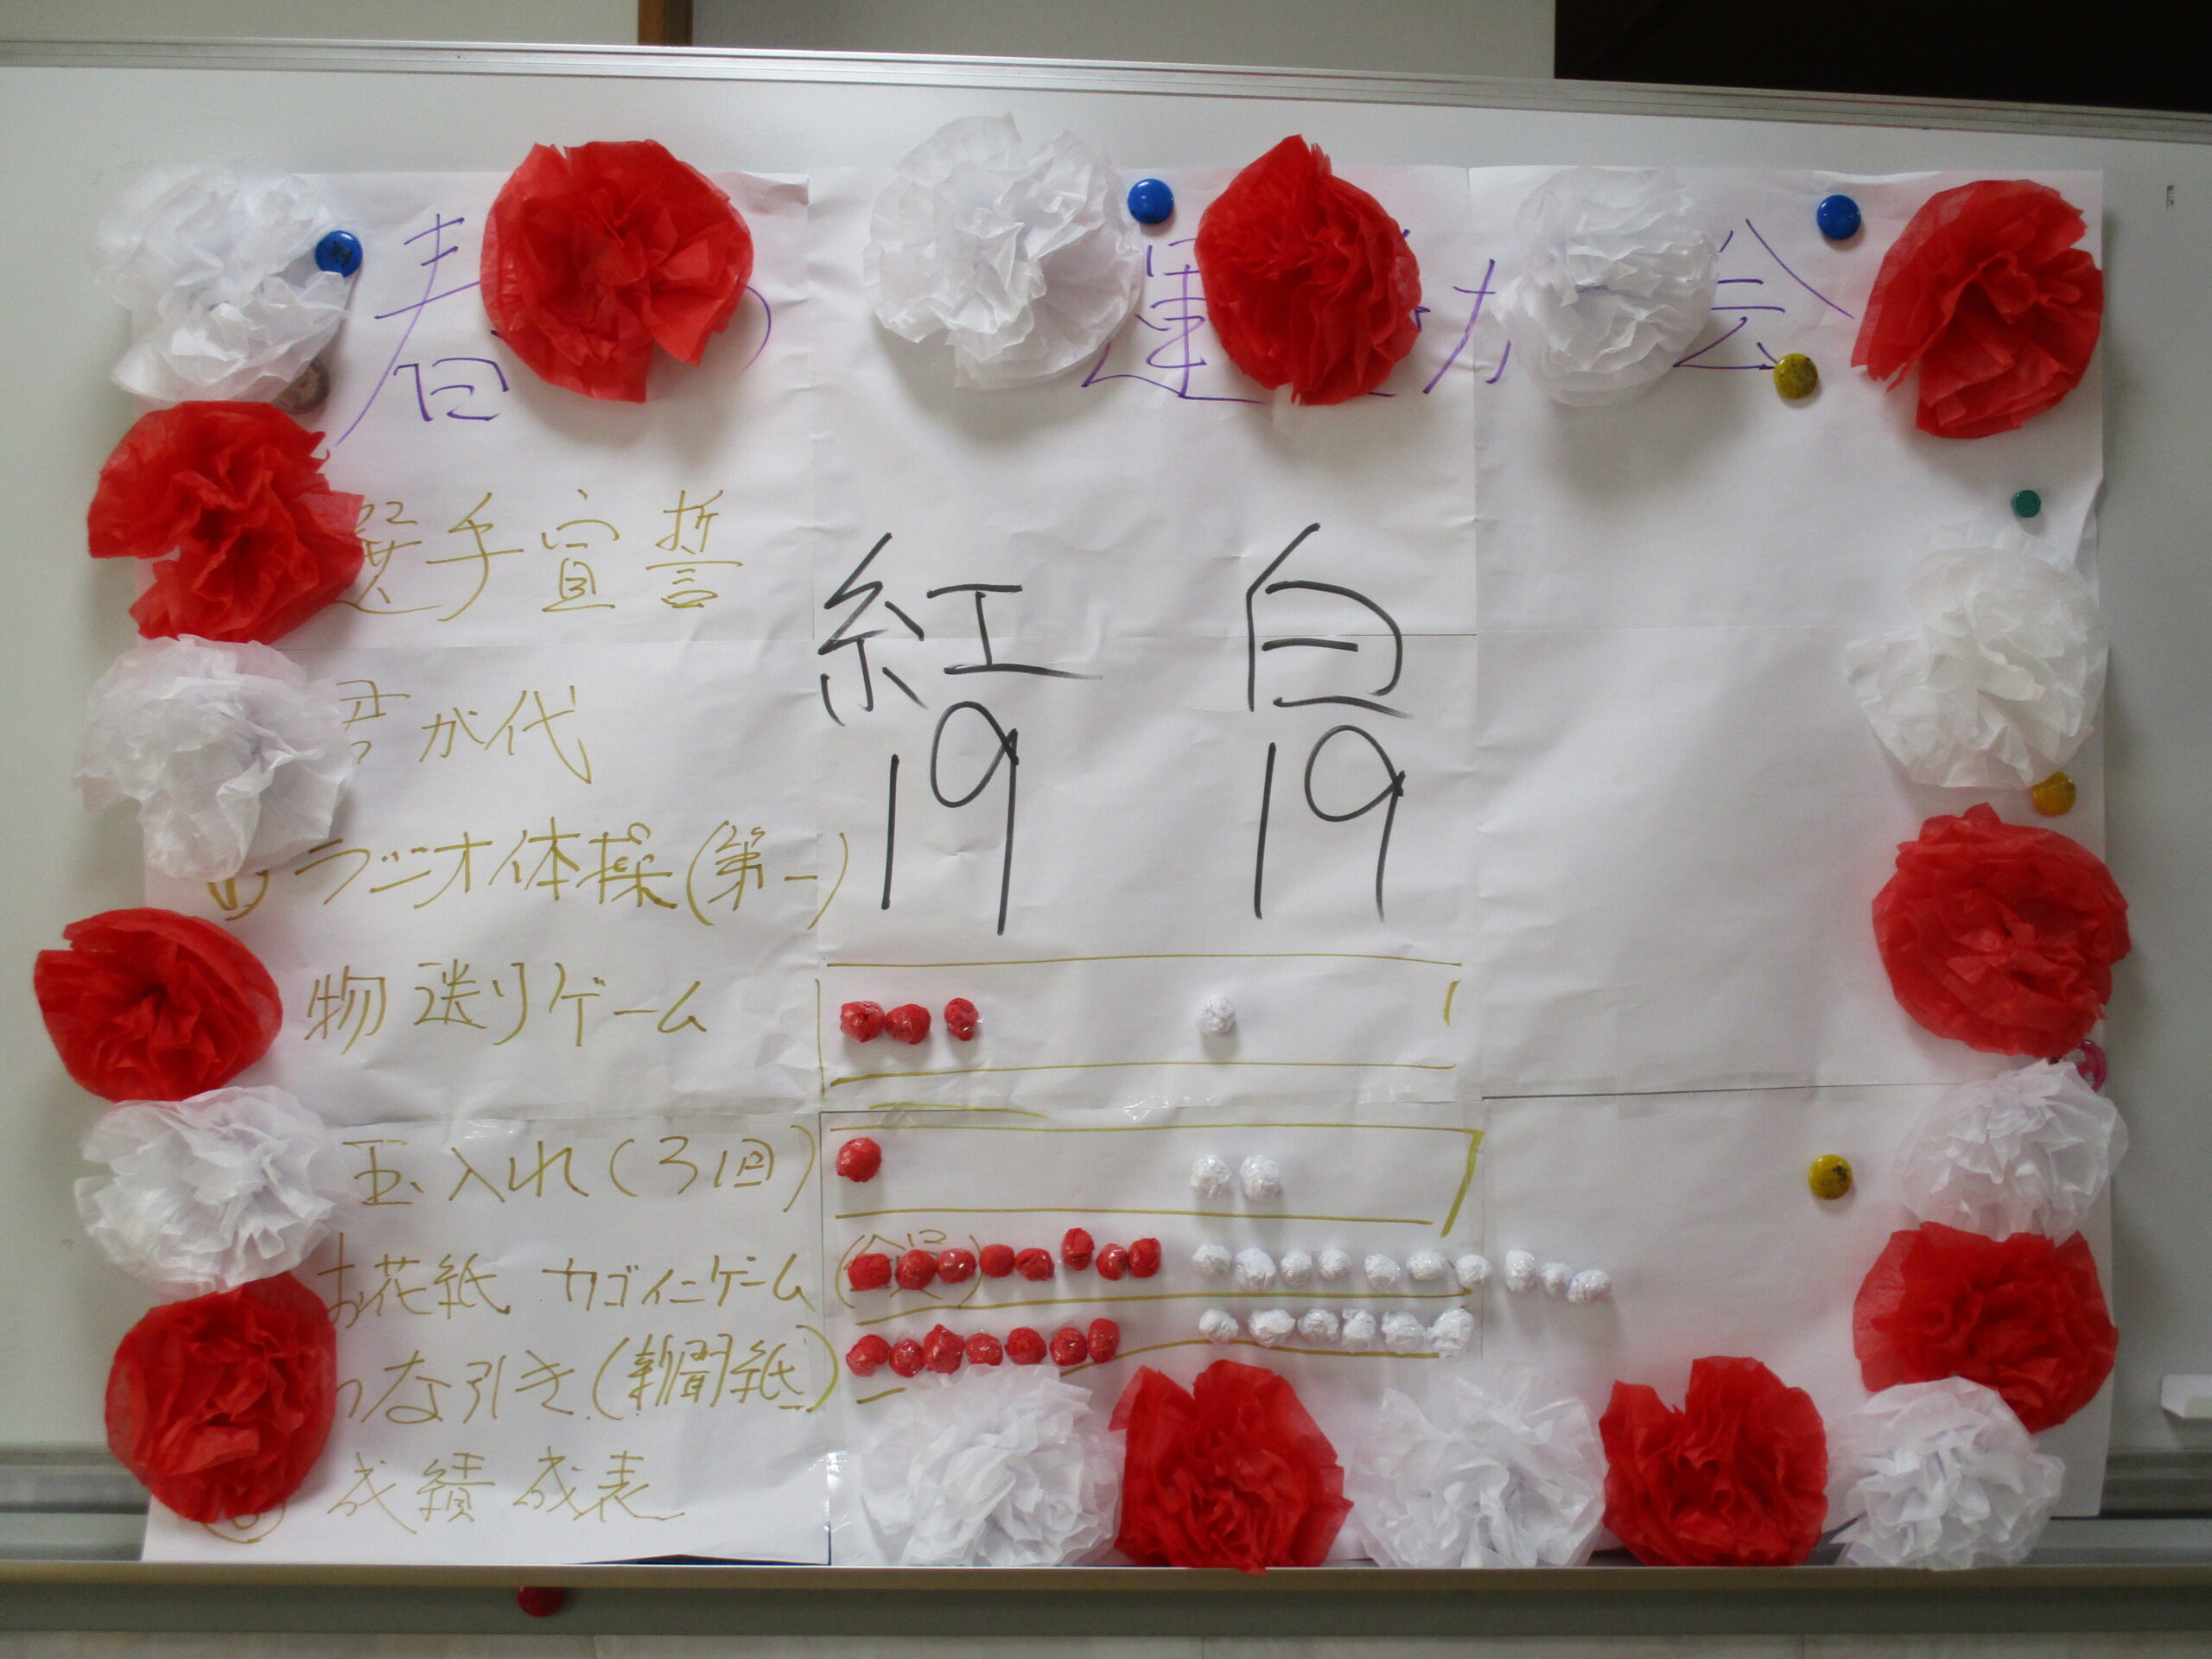 春 運 会
選手宣誓
君が代
① ラジオ体操(第一)
物送りゲーム
玉入れ(3回)
お花紙 カゴイニゲーム
つな引き(新聞紙)
成績成表
紅 白
19 19